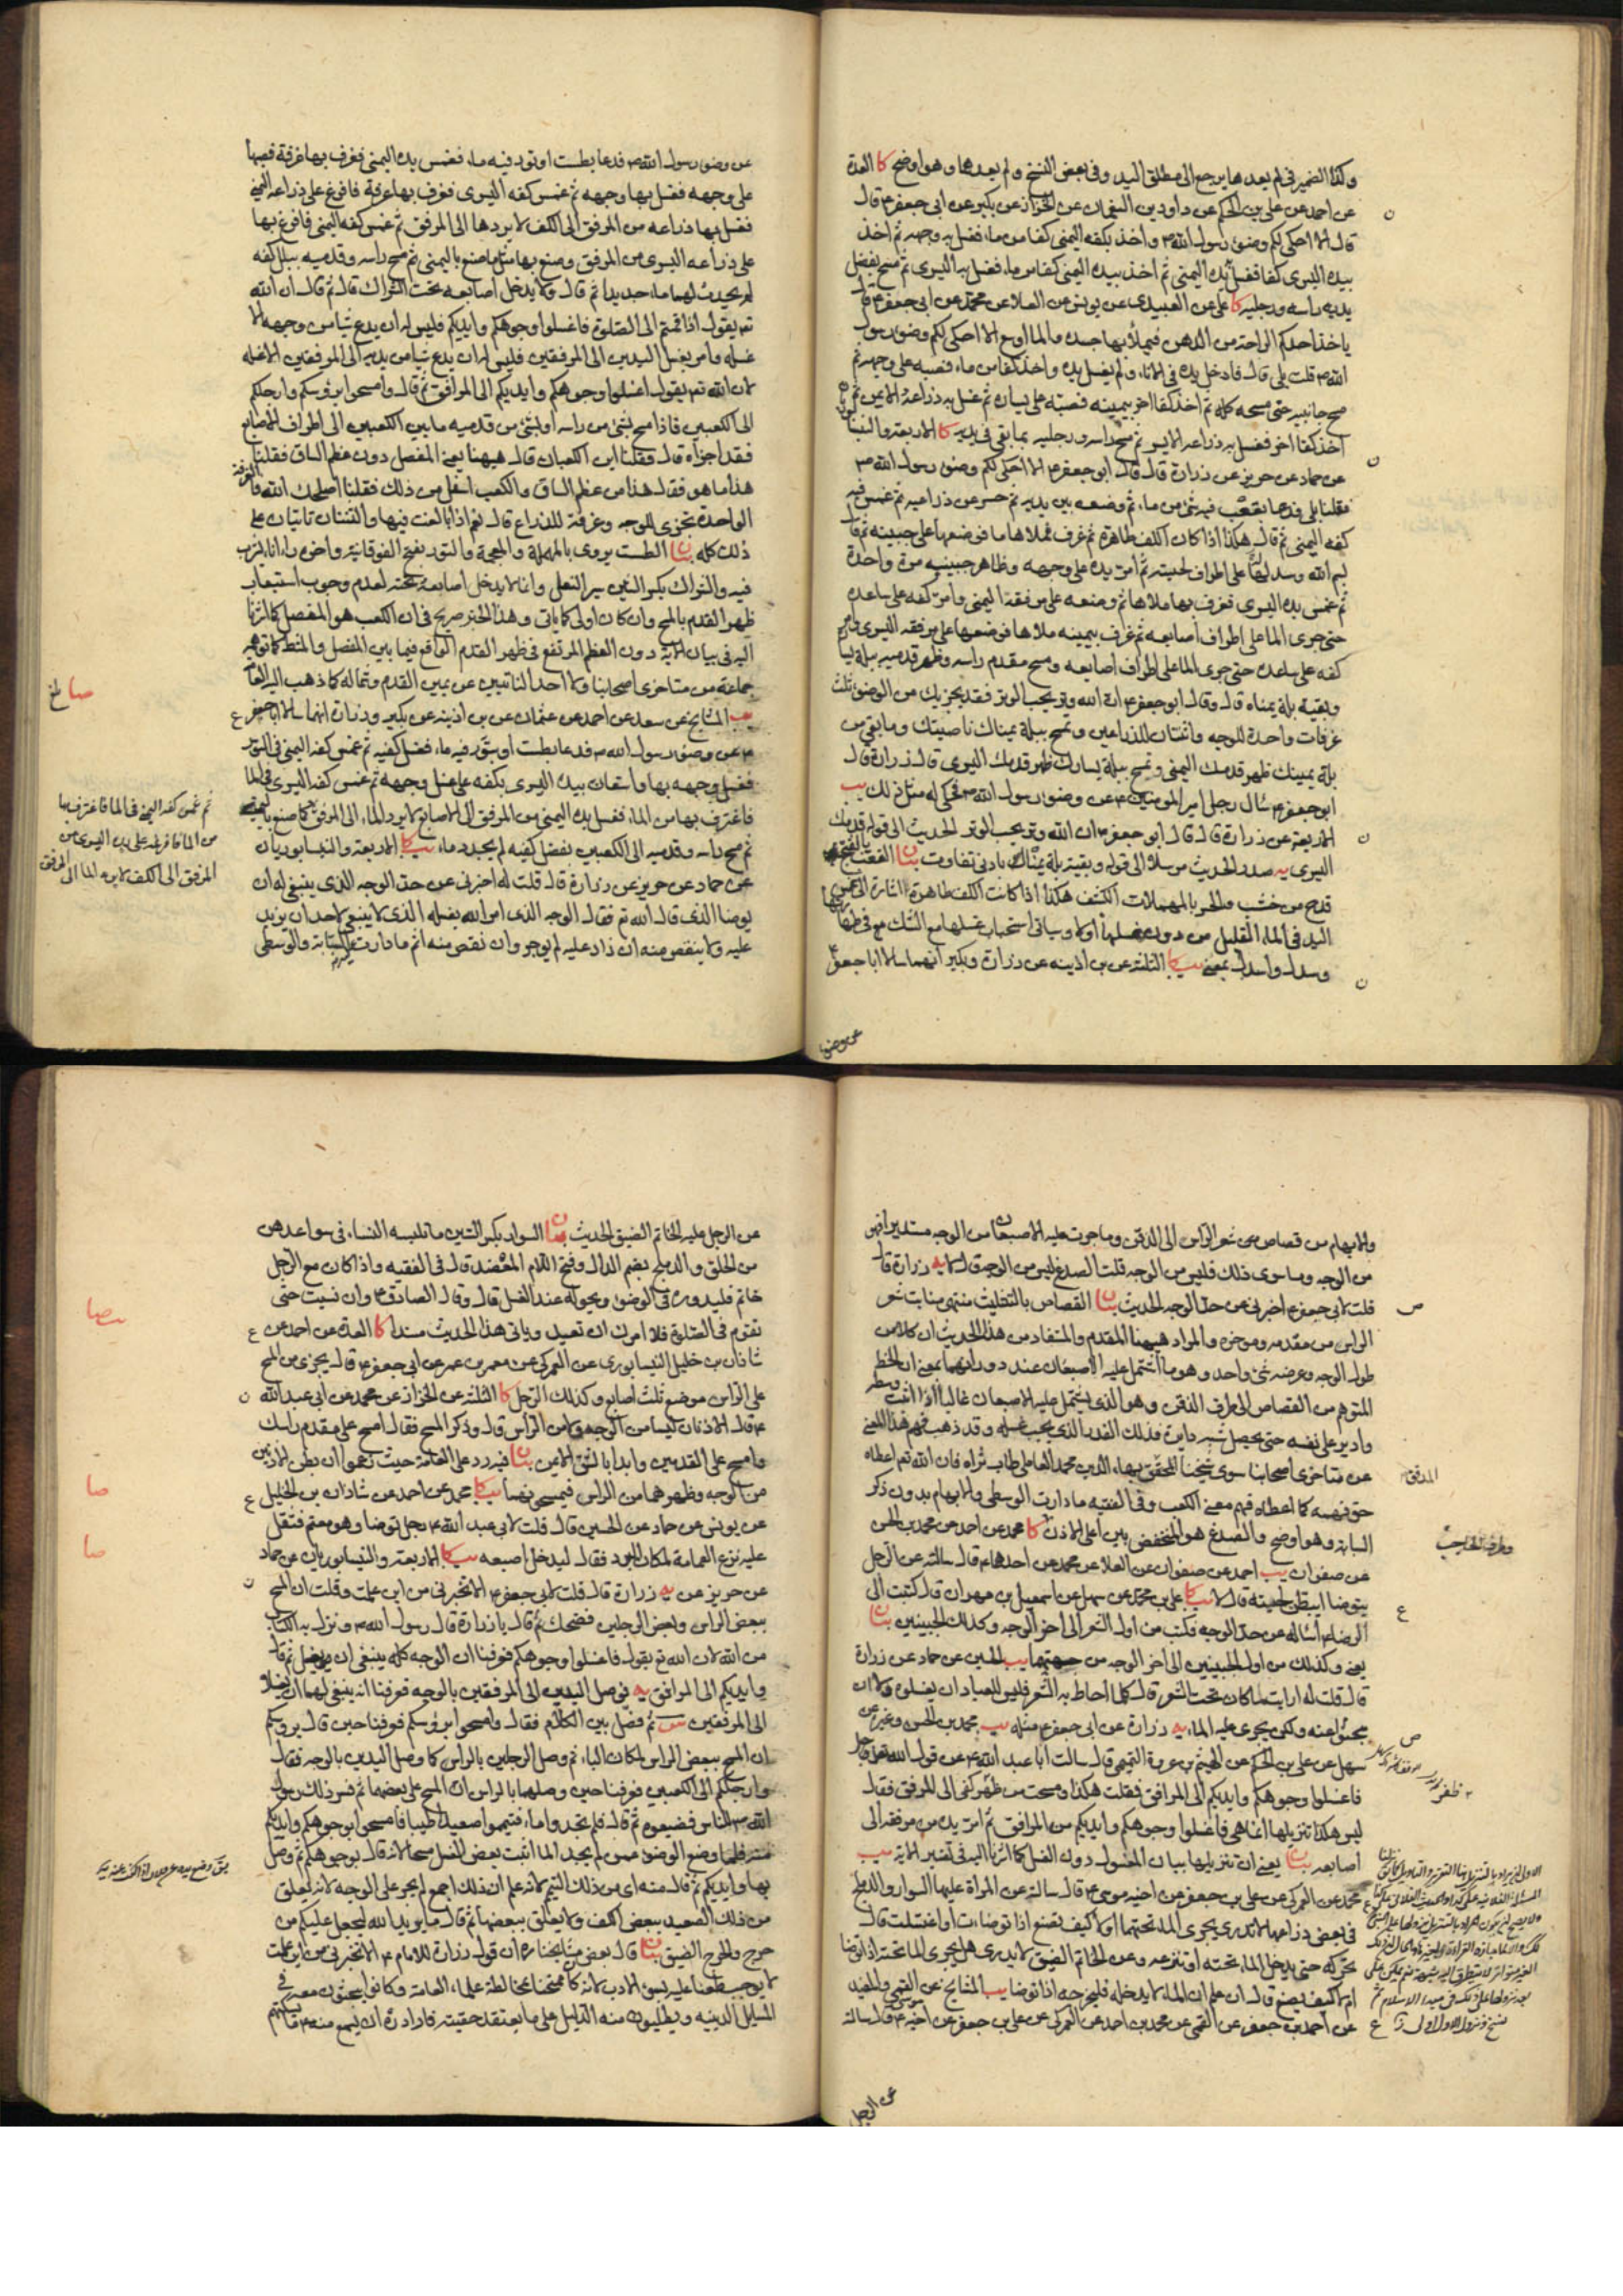 وكذا الضمير في لم يعدها يرجع الى مطلق اليد وفي بعض النسخ ولم يعدهما وهو اوضح كا العدة
عن احمد عن علي بن الحكم عن داود بن النعمان عن الخزاز عن بكير عن ابي جعفر ع قال
قال الا احكي لكم وضوء رسول الله ص واخذ بكفه اليمنى كفا من ماء فغسل به وجهه ثم اخذ
بيده اليسرى كفا فغسل به يده اليمنى ثم اخذ بيده اليمنى كفا من ماء فغسل به اليسرى ثم مسح بفضل
يديه راسه ورجليه كا علي عن العبيدي عن يونس عن العلا عن محمد عن ابي جعفر ع قال
ياخذ احدكم الراحة من الدهن فيملأ بها جسده والماء اوسع الا احكي لكم وضوء رسول
الله ص قلت بلى قال فادخل يده في الاناء ولم يغسل يده واخذ كفا من ماء فصبه على وجهه ثم
مسح جانبيه حتى مسحه كله ثم اخذ كفا اخر بيمينه فصبه على يساره ثم غسل به ذراعه الايمن ثم
اخذ كفا اخر فغسل به ذراعه الايسر ثم مسح راسه ورجليه بما بقي في يديه كا الاربعة والنيسابوريان
عن حماد عن حريز عن زرارة قال قال ابو جعفر ع الا احكي لكم وضوء رسول الله ص
فقلنا بلى فدعا بقعب فيه شيء من ماء ثم وضعه بين يديه ثم حسر عن ذراعيه ثم غمس فيه
كفه اليمنى ثم قال هكذا اذا كان الكف طاهرة ثم غرف فملاها ماء فوضعها على جبينه ثم قال
بسم الله وسدله على اطراف لحيته ثم امر يده على وجهه وظاهر جبينيه مرة واحدة
ثم غمس يده اليسرى فغرف بها ملاها ثم وضعه على مرفقه اليمنى وامر كفه على ساعده
حتى جرى الماء على اطراف اصابعه ثم غرف بيمينه ملاها فوضعها على مرفقه اليسرى وامر
كفه على ساعده حتى جرى الماء على اطراف اصابعه ومسح مقدم راسه وظهر قدميه ببلة يساره
وبقية بلة يمناه قال وقال ابو جعفر ع ان الله وتر يحب الوتر فقد يجزيك من الوضوء ثلث
غرفات واحدة للوجه واثنتان للذراعين وتمسح ببلة يمناك ناصيتك وما بقي من
بلة يمينك ظهر قدمك اليمنى وتمسح ببلة يسارك ظهر قدمك اليسرى قال زرارة قال
ابو جعفر ع سأل رجل امير المؤمنين ع عن وضوء رسول الله ص فحكى له مثل ذلك يب
الاربعة عن زرارة قال قال ابو جعفر ع ان الله وتر يحب الوتر الحديث الى قوله قدمك
اليسرى يه صدر الحديث مرسلا الى قوله وبقية بلة يمناك بادنى تفاوت بيان القعب بالفتح
قدح من خشب والحسر بالمهملات الكشف هكذا اذا كانت الكف طاهرة اشارة الى
اليد في الماء القليل من دون غسلها اولا وسياتي استحباب غسلها مع الشك في
وسدل واسدل بمعنى يب كا الثلثة عن بن اذينه عن زرارة وبكير انهما سالا ابا جعفر ع
عن وضو
عن وضوء رسول الله ص فدعا بطست او تور فيه ماء فغمس يده اليمنى فغرف بها غرفة فصبها
على وجهه فغسل بها وجهه ثم غمس كفه اليسرى فغرف بها غرفة فافرغ على ذراعه اليمنى
فغسل بها ذراعه من المرفق الى الكف لا يردها الى المرفق ثم غمس كفه اليمنى فافرغ بها
على ذراعه اليسرى من المرفق وصنع بها مثل ما صنع باليمنى ثم مسح راسه وقدميه ببلل كفه
لم يحدث لهما ماء جديدا ثم قال ولا يدخل اصابعه تحت الشراك قال ثم قال ان الله
تعـ يقول اذا قمتم الى الصلوة فاغسلوا وجوهكم وايديكم فليس له ان يدع شيئا من وجهه الا
غسله وامر بغسل اليدين الى المرفقين فليس له ان يدع شيئا من يديه الى المرفقين الا غسله
لان الله تعـ يقول اغسلوا وجوهكم وايديكم الى المرافق ثم قال وامسحوا برؤسكم وارجلكم
الى الكعبين فاذا مسح بشيء من راسه او بشيء من قدميه ما بين الكعبين الى اطراف الاصابع
فقد اجزأه قال فقلنا اين الكعبان قال هيهنا يعني المفصل دون عظم الساق فقلنا
هذا ما هو فقال هذا من عظم الساق والكعب اسفل من ذلك فقلنا اصلحك الله فالغرفة
الواحدة تجزي للوجه وغرفة للذراع قال نعم اذا بالغت فيها والثنتان تاتيان على
ذلك كله بيان الطست يروى بالمهملة والمعجمة والتور بفتح الفوقانية واخره راء اناء يشرب
فيه والشراك بكسر الشين سير النعل وانما لا يدخل اصابعه تحته لعدم وجوب استيعاب
ظهر القدم بالمسح وان كان اولى كما ياتي وهذا الخبر صريح في ان الكعب هو المفصل كما اشرنا
اليه في بيان الاية دون العظم المرتفع في ظهر القدم الواقع فيما بين المفصل والمشط كما توهمه
جماعة من متاخري اصحابنا ولا احد الناتيين عن يمين القدم وشماله كما ذهب اليه العامة
يب المشايخ عن سعد عن احمد عن عثمان عن بن اذينه عن بكير وزرارة انهما سالا ابا جعفر
ع عن وضوء رسول الله ص فدعا بطست او بتور فيه ماء فغسل كفيه ثم غمس كفه اليمنى في التور
فغسل وجهه بها واستعان بيده اليسرى بكفه على غسل وجهه ثم غمس كفه اليسرى في الماء
فاغترف بها من الماء فغسل يده اليمنى من المرفق الى الاصابع لا يرد الماء الى المرفق كما صنع باليمنى
ثم مسح راسه وقدميه الى الكعبين بفضل كفيه لم يجدد ماء يب كا الاربعة والنيسابوريان
عن حماد عن حريز عن زرارة قال قلت له اخبرني عن حد الوجه الذي ينبغي له ان
يوضأ الذي قال الله تعـ فقال الوجه الذي امر الله بغسله الذي لا ينبغي لاحد ان يزيد
عليه ولا ينقص منه ان زاد عليه لم يوجر وان نقص منه اثم ما دارت عليه السبابة والوسطى
صا
ثم غمس كفه اليمنى في الماء فاغترف بها
من الماء فافرغه على يده اليسرى من
المرفق الى الكف لا يرد الماء الى المرفق
والابهام من قصاص شعر الراس الى الذقن وما جرت عليه الاصبعان من الوجه مستديرا فهو
من الوجه وما سوى ذلك فليس من الوجه قلت الصدغ ليس من الوجه قال لا يه زرارة قال
قلت لابي جعفر ع اخبرني عن حد الوجه الحديث بيان القصاص بالتثليث منتهى منابت شعر
الراس من مقدمه وموخره والمراد هيهنا المقدم والمستفاد من هذا الحديث ان كلا من
طول الوجه وعرضه شيء واحد وهو ما اشتمل عليه الاصبعان عند دورانهما بمعنى ان الخط
المتوهم من القصاص الى طرف الذقن وهو الذي يشتمل عليه الاصبعان غالبا اذا اثبت وسطه
وادير على نفسه حتى يحصل شبه دايرة فذلك القدر الذي يجب غسله وقد ذهب فهم هذا المعنى
عن متاخري اصحابنا سوى شيخنا المحقق بهاء الدين محمد العاملي طاب ثراه فان الله تعـ اعطاه
حق فهمه كما اعطاه فهم معنى الكعب وفي الفقيه ما دارت الوسطى والابهام بدون ذكر
السبابة وهو اوضح والصدغ هو المنخفض بين اعلى الاذن كا محمد عن احمد عن محمد بن الحسين
عن صفوان يب احمد عن صفوان عن العلا عن محمد عن احدهما ع قال سالته عن الرجل
يتوضا ايبطن لحيته قال لا يب كا علي بن محمد عن سهل عن اسمعيل بن مهران قال كتبت الى
الرضا ع اسأله عن حد الوجه فكتب من اول الشعر الى اخر الوجه وكذلك الجبينين بيان
يعني وكذلك من اول الجبينين الى اخر الوجه من جهتهما يب الحسين عن حماد عن زرارة
قال قلت له ارايت ما كان تحت الشعر قال كلما احاط به الشعر فليس للعباد ان يغسلوه ولا ان
يبحثوا عنه ولكن يجرى عليه الماء يه زرارة عن ابي جعفر ع مثله يب محمد بن الحسن وغيره عن
سهل عن علي بن الحكم عن الهيثم بن عروة التميمي قال سالت ابا عبد الله ع عن قول الله عز وجل
فاغسلوا وجوهكم وايديكم الى المرافق فقلت هكذا ومسحت من ظهر كفي الى المرفق فقال
ليس هكذا تنزيلها انما هي فاغسلوا وجوهكم وايديكم من المرافق ثم امر يده من مرفقه الى
اصابعه بيان يعني ان تنزيلها بيان المغسول دون الغسل كما اشرنا اليه في تفسير الاية يب
محمد عن العمركي عن علي بن جعفر عن اخيه موسى ع قال سالته عن المراة عليها السوار والدملج
في بعض ذراعها لا تدري يجري الماء تحتهما او لا كيف تصنع اذا توضات او اغتسلت قال
تحركه حتى يدخل الماء تحته او تنزعه وعن الخاتم الضيق لا يدري هل يجري الماء تحته اذا توضا
ام لا كيف يصنع قال ان علم ان الماء لا يدخله فليخرجه اذا توضا يب المشايخ عن القمي والمفيد
عن احمد بن جعفر عن القمي عن محمد بن احمد عن العمركي عن علي بن جعفر عن اخيه موسى ع قال سالته
عن الرجل
عن الرجل عليه الخاتم الضيق الحديث بيان السوار بكسر السين ما تلبسه النساء في سواعدهن
من الحلق والدملج بضم الدال وفتح اللام المعضد قال في الفقيه واذا كان مع الرجل
خاتم فليدوره في الوضوء ويحوله عند الغسل قال وقال الصادق ع وان نسيت حتى
تقوم في الصلوة فلا امرك ان تعيد وياتي هذا الحديث مسندا كا العدة عن احمد عن
شاذان بن خليل النيسابوري عن العمركي عن معمر بن عمر عن ابي جعفر ع قال يجزي من المسح
على الراس موضع ثلث اصابع وكذلك الرجل كا الثلثة عن الخزاز عن محمد عن ابي عبد الله
ع قال الاذنان ليسا من الوجه ولا من الراس قال وذكر المسح فقال امسح على مقدم راسك
وامسح على القدمين وابدا بالشق الايمن بيان فيه رد على العامة حيث زعموا ان بطن الاذنين
من الوجه وظهرهما من الراس فيمسحونهما يب كا محمد عن احمد عن شاذان بن الخليل
عن يونس عن حماد عن الحسين قال قلت لابي عبد الله ع رجل توضا وهو معتم فثقل
عليه نزع العمامة لمكان البرد فقال ليدخل اصبعه يب كا الاربعة والنيسابوريان عن حماد
عن حريز عن يه زرارة قال قلت لابي جعفر ع الا تخبرني من اين علمت وقلت ان المسح
ببعض الراس وبعض الرجلين فضحك ثم قال يا زرارة قال رسول الله ص ونزل به الكتاب
من الله لان الله تعـ يقول فاغسلوا وجوهكم فعرفنا ان الوجه كله ينبغي ان يغسل ثم قال
وايديكم الى المرافق يه فوصل اليدين الى المرفقين بالوجه فعرفنا انه ينبغي لهما ان يغسلا
الى المرفقين ش ثم فصل بين الكلام فقال وامسحوا برؤسكم فعرفنا حين قال برؤسكم
ان المسح ببعض الراس لمكان الباء ثم وصل الرجلين بالراس كما وصل اليدين بالوجه فقال
وارجلكم الى الكعبين فعرفنا حين وصلهما بالراس ان المسح على بعضهما ثم فسر ذلك رسول
الله ص للناس فضيعوه ثم قال فلم تجدوا ماء فتيمموا صعيدا طيبا فامسحوا بوجوهكم وايديكم
منه فلما وضع الوضوء عمن لم يجد الماء اثبت بعض الغسل مسحا لانه قال بوجوهكم ثم وصل
بها وايديكم ثم قال منه اي من ذلك التيمم لانه علم ان ذلك اجمع لم يجر على الوجه لانه يعلق
من ذلك الصعيد ببعض الكف ولا يعلق ببعضها ثم قال ما يريد الله ليجعل عليكم من
حرج والحرج الضيق بيان قال بعض مشايخنا ره ان قول زرارة للامام ع الا تخبرني من اين علمت
لا يوجب طعنا عليه بسوء الادب لانه كان ممتحنا بمخالطة علماء العامة وكانوا يبحثون معه في
المسايل الدينية ويطلبون منه الدليل على ما يعتقد حقيته فاراد ره ان يسمع منه ع
صا
صا